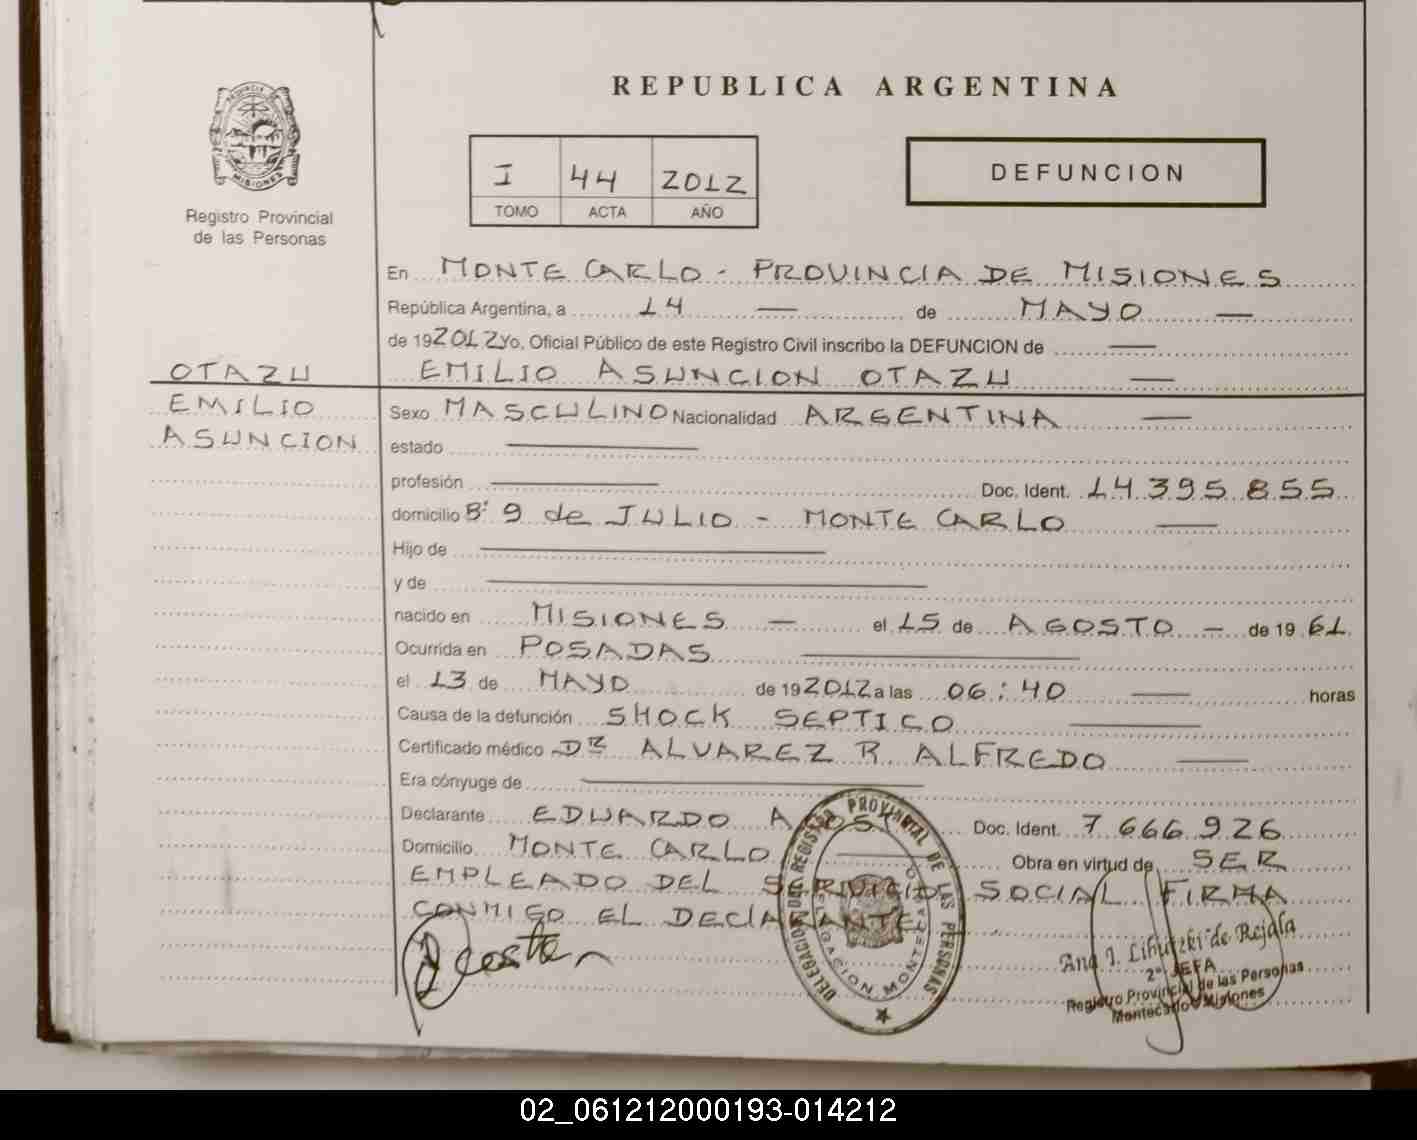 REPUBLICA ARGENTINA
PROVINCIA DE
MISIONES
Registro Provincial
de las Personas
I 44 2012
TOMO ACTA AÑO
DEFUNCION
En MONTE CARLO - PROVINCIA DE MISIONES
República Argentina, a 14 — de MAYO —
de 192012 Yo, Oficial Público de este Registro Civil inscribo la DEFUNCION de —
OTAZU
EMILIO
ASUNCION
EMILIO ASUNCION OTAZU —
Sexo MASCULINO Nacionalidad ARGENTINA —
estado —
profesión — Doc. Ident. 14 395 855
domicilio Bº 9 de JULIO - MONTE CARLO —
Hijo de —
y de —
nacido en MISIONES — el 15 de AGOSTO - de 19 61
Ocurrida en POSADAS —
el 13 de MAYO de 192012 a las 06:40 — horas
Causa de la defunción SHOCK SEPTICO —
Certificado médico DR ALVAREZ R. ALFREDO —
Era cónyuge de —
Declarante EDUARDO Doc. Ident. 7 666 926
Domicilio MONTE CARLO — Obra en virtud de SER
EMPLEADO DEL SERVICIO SOCIAL FIRMA
CONMIGO EL DECLARANTE
DELEGACION DEL REGISTRO PROVINCIAL DE LAS PERSONAS
Rejala
2º JEFA
Registro Provincial de las Personas
Montecarlo Misiones
02_061212000193-014212